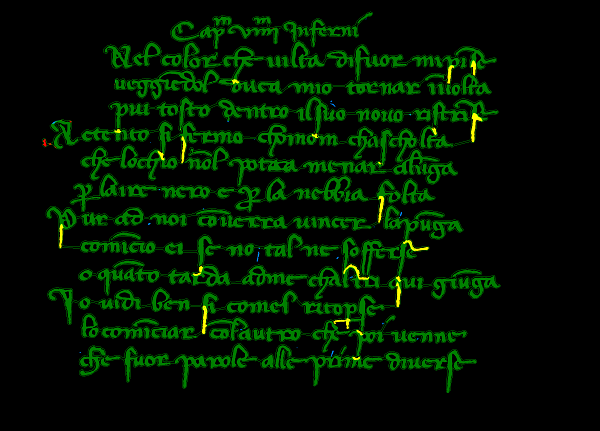 Capᵐ viiiiᵐ Inferni
Qel color che uilta difuor mi pīse
ueggiēdol duca mio tornar īuolta
piu tosto dentro ilsuo nouo ristrīse
Actento si fermo chomom chascholta
che lochio nōl potea menar alūga
ꝑ laire nero e ꝑ la nebbia folta
Pur ad noi cōuerra uincer lapūga
comīcio ei se no tal ne sofferse
o quāto tarda adme chaltri qui giūga
Io uidi ben si comel ricoꝑse
lo comīciar colautro che poi uenne
che fuor parole alle prime diuerse